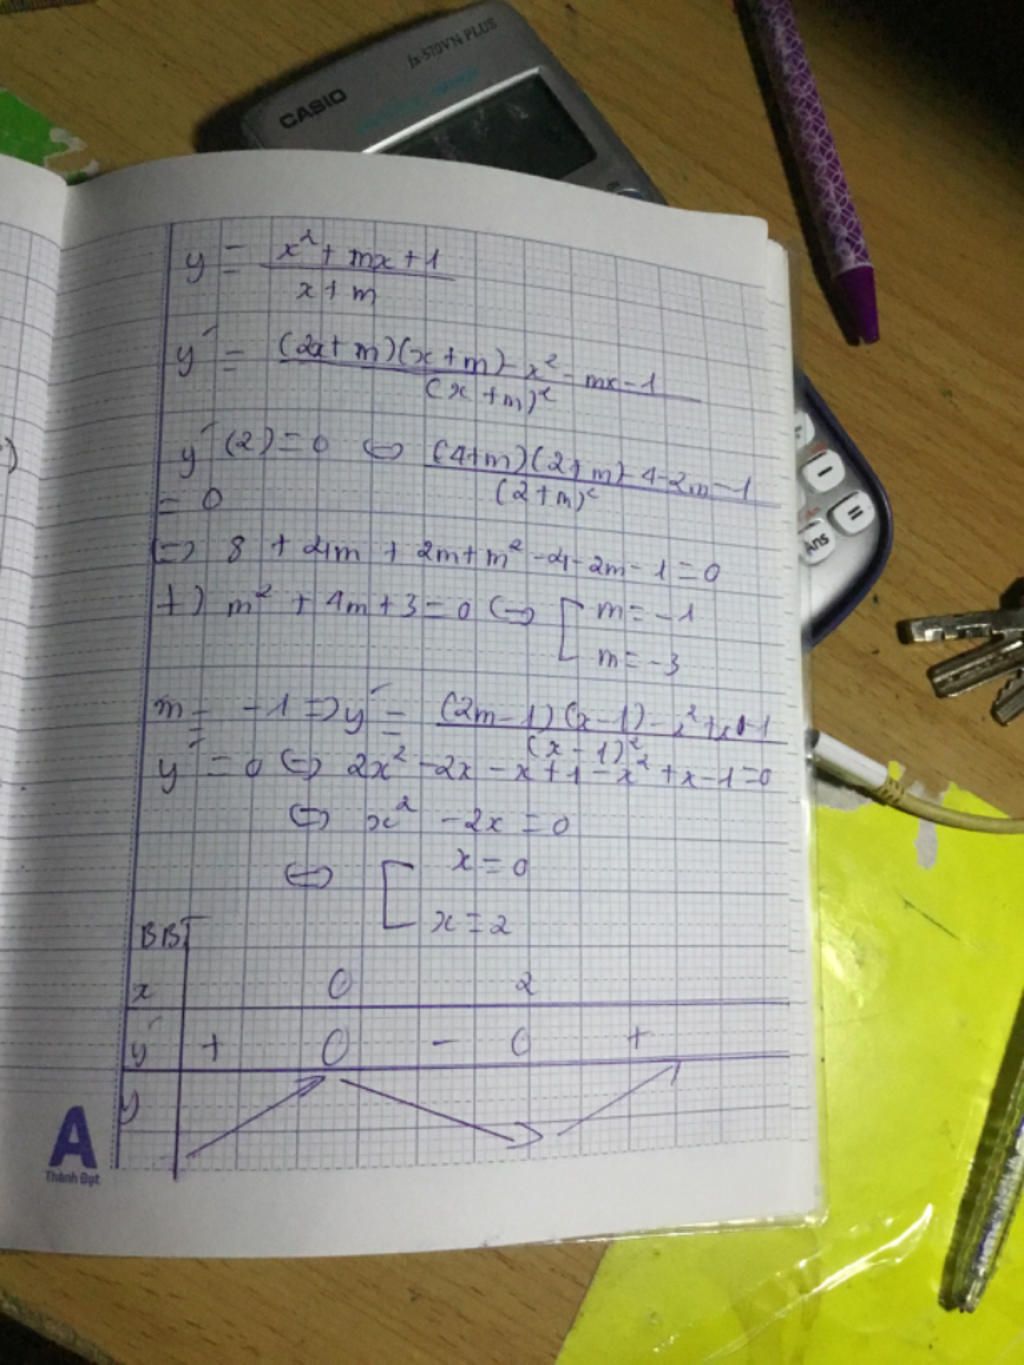 CASIO
fx-570VN PLUS
y = \frac{x^2 + mx + 1}{x + m}
y' = \frac{(2x + m)(x + m) - x^2 - mx - 1}{(x + m)^2}
y'(2) = 0 ⇔ \frac{(4+m)(2+m) - 4 - 2m - 1}{(2+m)^2}
= 0
⇔ 8 + 4m + 2m + m^2 - 4 - 2m - 1 = 0
+) m^2 + 4m + 3 = 0 ⇔ [ m = -1
m = -3
m = -1 ⇒ y' = \frac{(2m-1)(x-1) - x^2 + x - 1}{(x-1)^2}
y' = 0 ⇔ 2x^2 - 2x - x + 1 - x^2 + x - 1 = 0
⇔ x^2 - 2x = 0
⇔ [ x = 0
x = 2
BBT
x 0 2
y' + 0 - 0 +
y
A
Thành Đạt
-
=
Ans